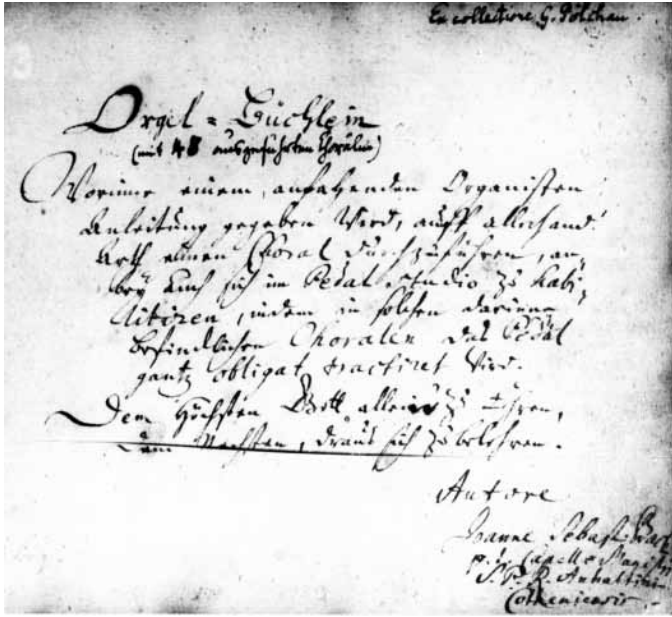 Ex collectione G. Pölchau.
Orgel = Büchlein
(mit 48 ausgeführten Chorälen)
Worinne einem anfahenden Organisten
Anleitung gegeben wird, auff allerhand
Arth einen Choral durchzuführen, an-
bey auch sich im Pedal studio zu habi-
litiren, indem in solchen darinne
befindlichen Choralen das Pedal
gantz obligat tractiret wird.
Dem Höchsten Gott allein zu Ehren,
Dem Nechsten, draus sich zu belehren.
Autore
Joanne Sebast. Bach
p. t. Capellæ Magistri
S. P. R. Anhaltini-
Cotheniensis.